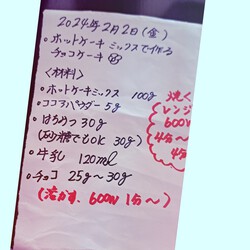 2024年2月2日(金)
・ホットケーキミックスで作る
チョコケーキ
<材料>
・ホットケーキミックス 100g
・ココアパウダー 5g
・はちみつ 30g
(砂糖でもOK 30g)
・牛乳 120ml
・チョコ 25g~30g
(溶かす、600W 1分~)
焼く
レンジ
600W
4分~
4分